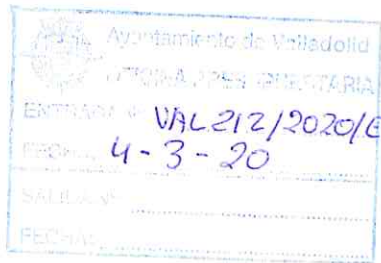 Ayuntamiento de Valladolid
OFICINA PRESUPUESTARIA
ENTRADA Nº VAL212/2020/E
FECHA: 4-3-20
SALIDA Nº
FECHA: